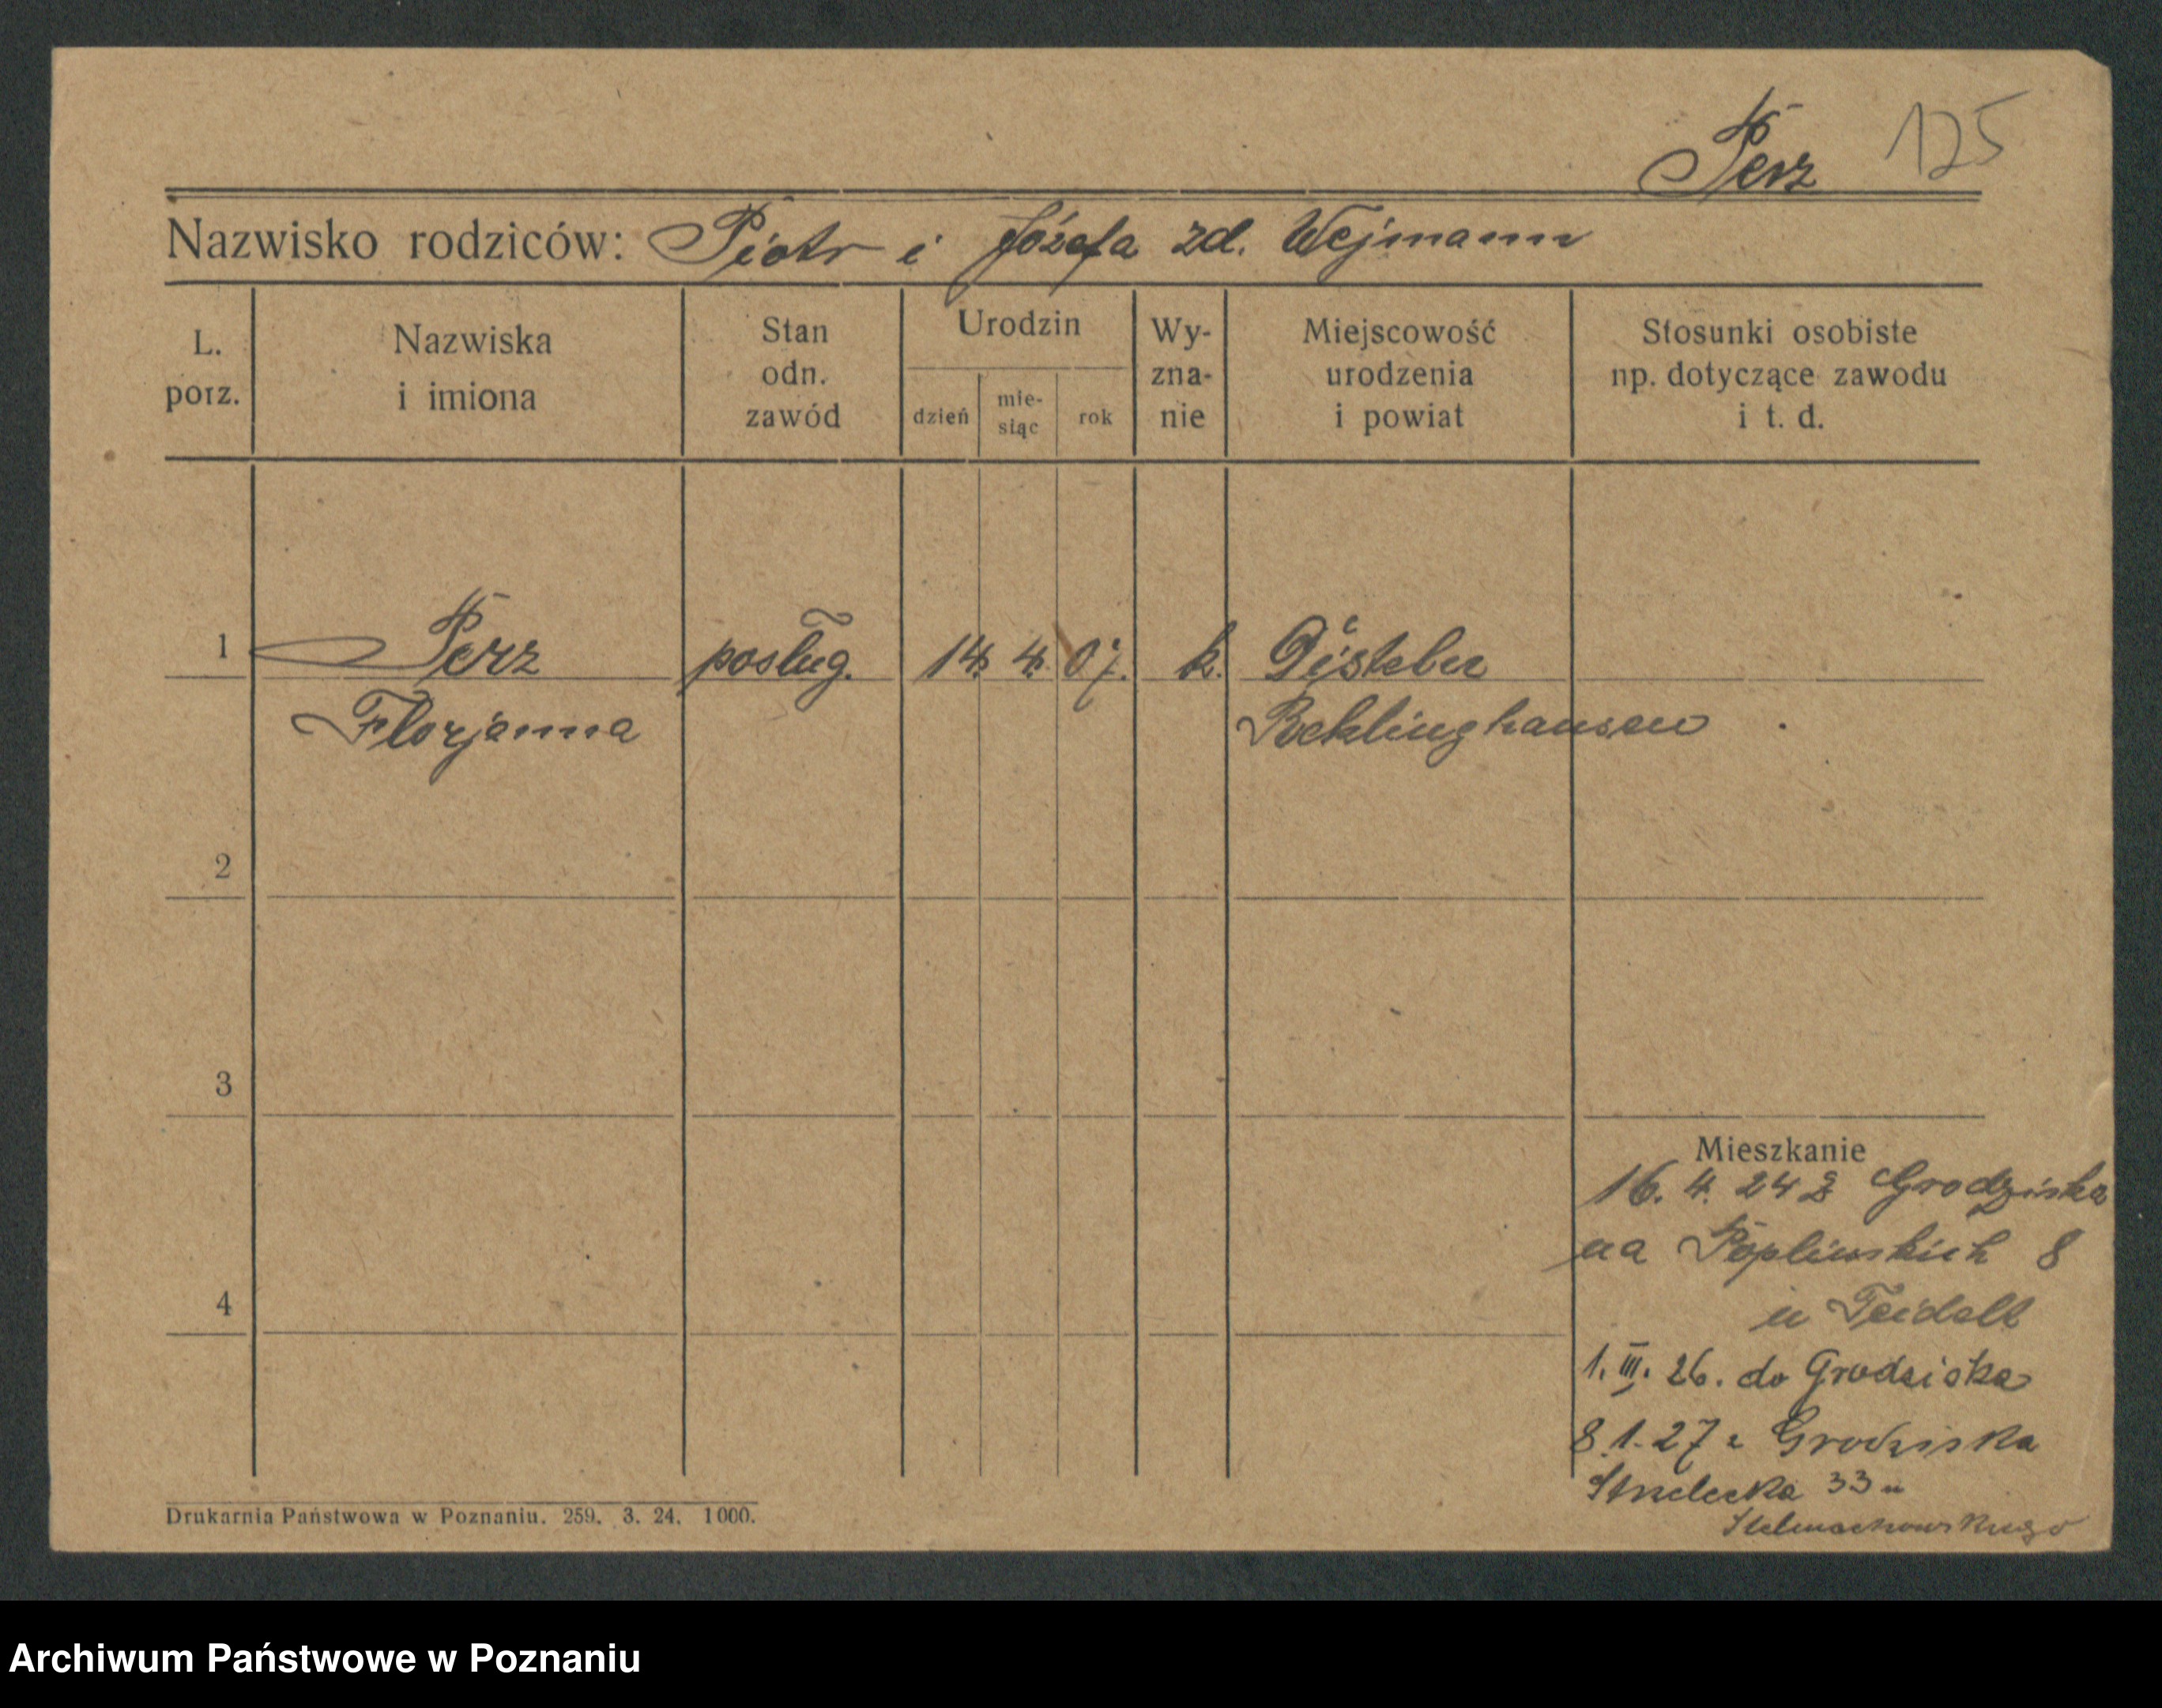 Perz 125
Nazwisko rodziców: Piotr i Józefa zd. Wejmann
L. porz.
Nazwiska i imiona
Stan odn. zawód
Urodzin
dzień
mie-siąc
rok
Wy-zna-nie
Miejscowość urodzenia i powiat
Stosunki osobiste np. dotyczące zawodu i t. d.
1 Perz posług. 14. 4. 07. k. Disteln
Florjanna Recklinghausen
2
3
Mieszkanie
16. 4. 24 z Grodziska
na Poplinskich 8
4
u Teidelt
1. III. 26. do Grodziska
8.1.27 z Grodziska
Strzelecka 33 u
Stelmachowskiego
Drukarnia Państwowa w Poznaniu. 259. 3. 24. 1000.
Archiwum Państwowe w Poznaniu